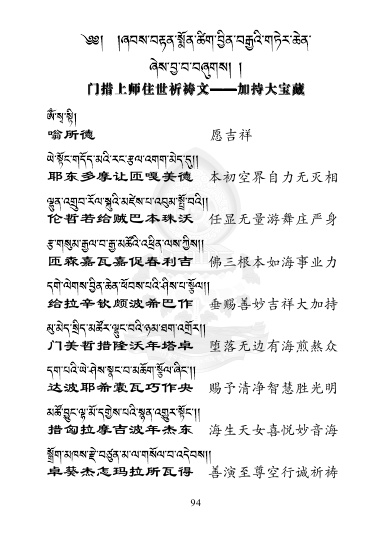 ༄༅། །ཞབས་བརྟན་སྨོན་ཚིག་བྱིན་བརླབས་ཀྱི་གཏེར་ཆེན་
ཞེས་བྱ་བ་བཞུགས། །
门措上师住世祈祷文——加持大宝藏
ཨོཾ་སྭ་སྟི།
嗡所德 愿吉祥
ཡེ་སྟོང་གདོད་མའི་རང་རྩལ་འགག་མེད་དུ།།
耶东多摩让匝嘎美德 本初空界自力无灭相
ལྷུན་འགྲུབ་རོལ་སྐུའི་མཛེས་པ་འབུམ་སྤྲོ་བའི།།
伦哲若给贼巴本珠沃 任显无量游舞庄严身
རྩ་གསུམ་རྒྱལ་བ་རྒྱ་མཚོའི་འཕྲིན་ལས་ཀྱིས།།
匝森嘉瓦嘉促春利吉 佛三根本如海事业力
དགེ་ལེགས་བྱིན་ཆེན་ཕོབས་པའི་ཤིས་པ་སྩོལ།།
给拉辛钦颇波希巴作 垂赐善妙吉祥大加持
མུ་མེད་སྲིད་མཚོར་ལྷུང་བའི་ཉམ་ཐག་འགྲོར།།
门美哲措隆沃年塔卓 堕落无边有海煎熬众
དག་པའི་ཡེ་ཤེས་སྣང་བ་མཆོག་སྩོལ་ཞིང་།།
达波耶希囊瓦巧作央 赐予清净智慧胜光明
མཚོ་བྱུང་ལྷ་མོ་དགྱེས་པའི་སྙན་འགྱུར་སྟོང་།།
措匈拉摩吉波年杰东 海生天女喜悦妙音海
སྒྲོག་མཁས་རྗེ་བཙུན་མ་ལ་གསོལ་བ་འདེབས།།
卓葵杰怎玛拉所瓦得 善演至尊空行诚祈祷
94